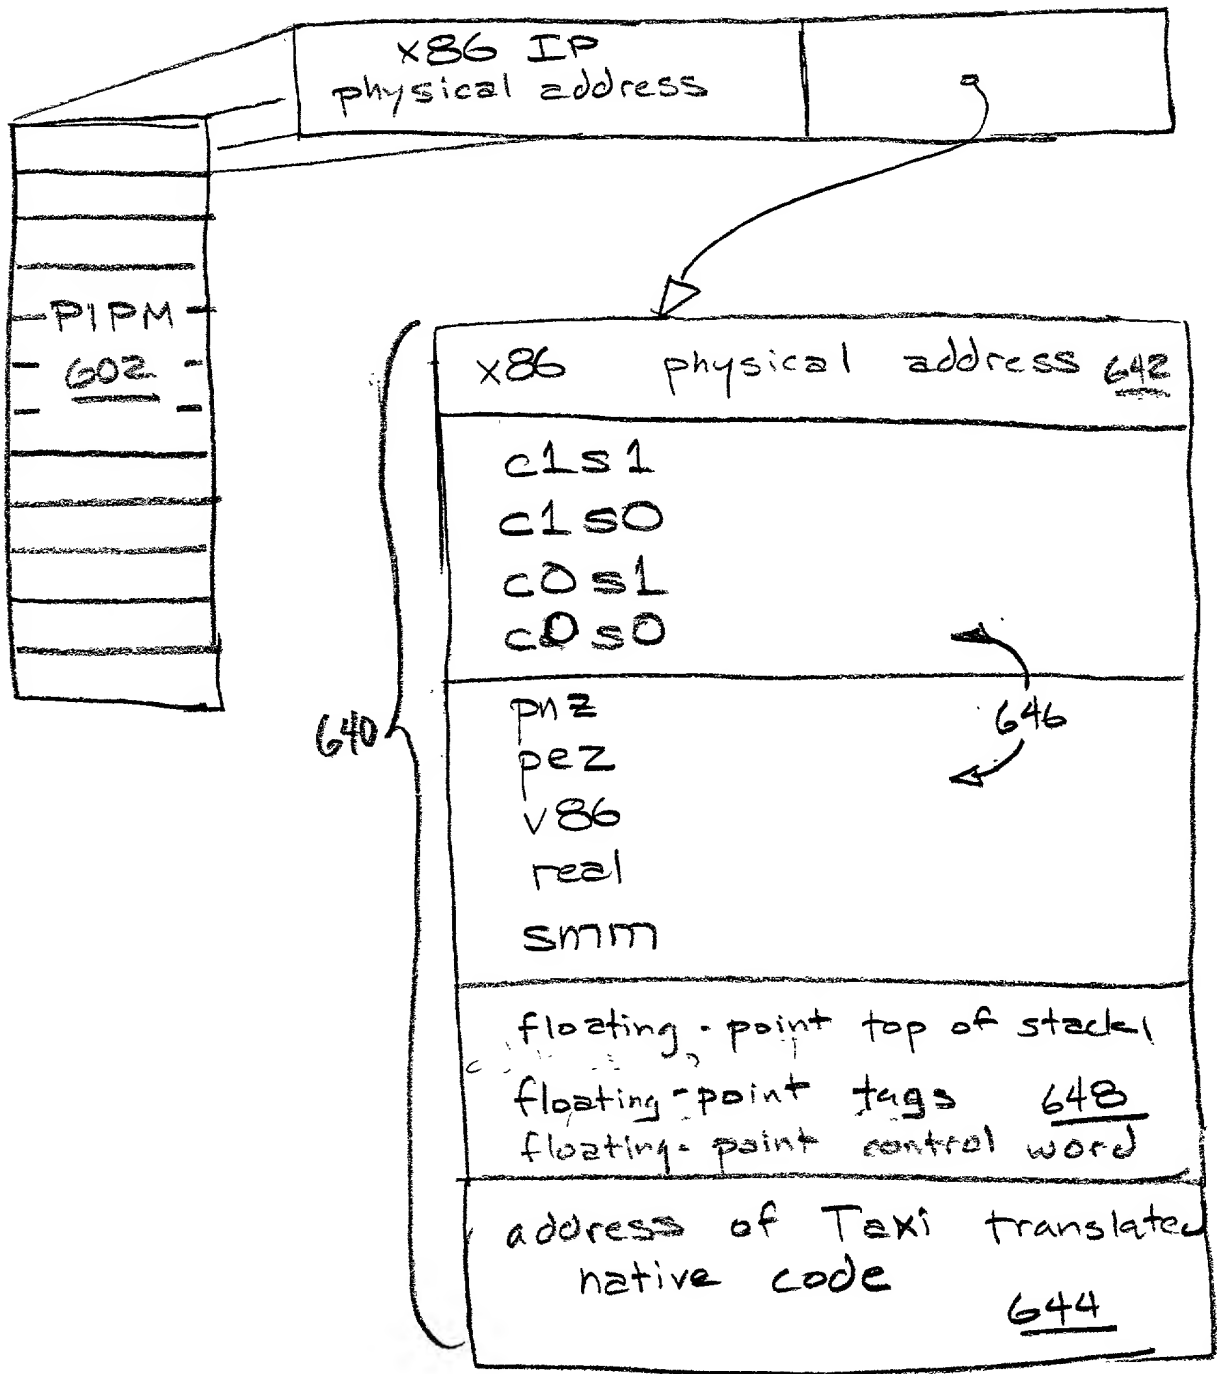 x86 IP
physical address
PIPM
602
x86 physical address 642
c1s1
c1s0
c0s1
c0s0
646
640
pnz
pez
v86
real
smm
floating-point top of stack
floating-point tags 648
floating-point control word
address of Taxi translated
native code
644